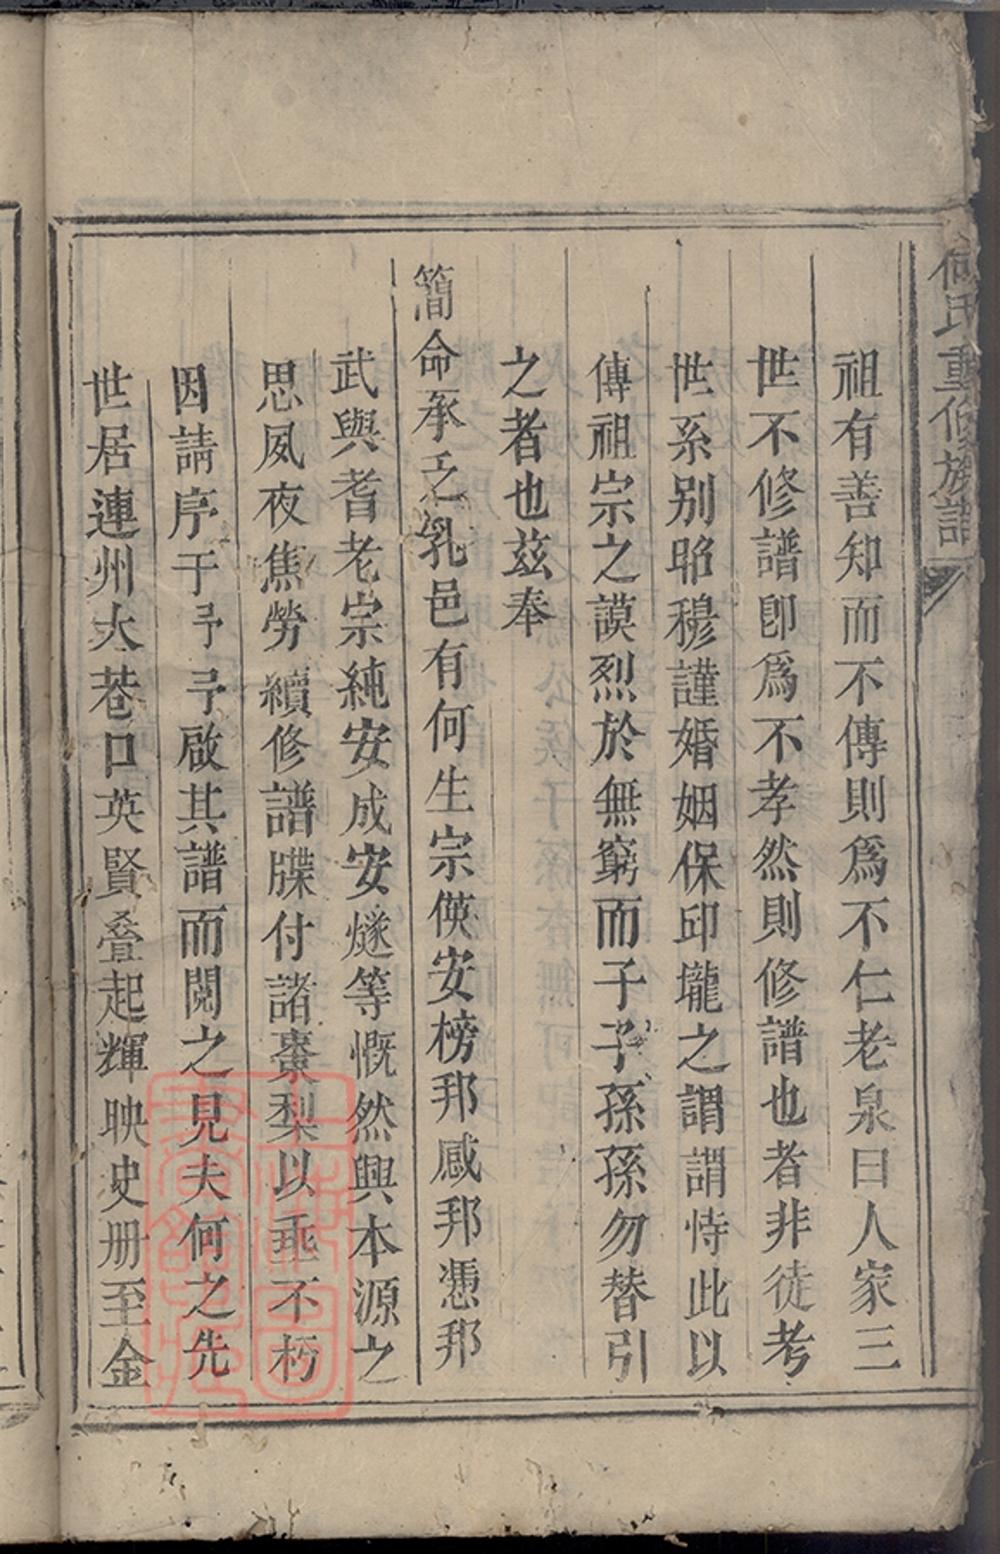 何氏重修族譜
祖有善知而不傳則爲不仁老泉曰人家三
世不修譜卽爲不孝然則修譜也者非徒考
世系别昭穆謹婚姻保邱壠之謂謂恃此以
傳祖宗之謨烈於無窮而子子孫孫勿替引
之者也茲奉
簡命承乏乳邑有何生宗偀安榜邦感邦憑邦
武與耆老宗純安成安燧等慨然興本源之
思夙夜焦勞續修譜牒付諸棗梨以垂不朽
因請序于予予啟其譜而閱之見夫何之先
世居連州大巷口英賢叠起輝映史册至金